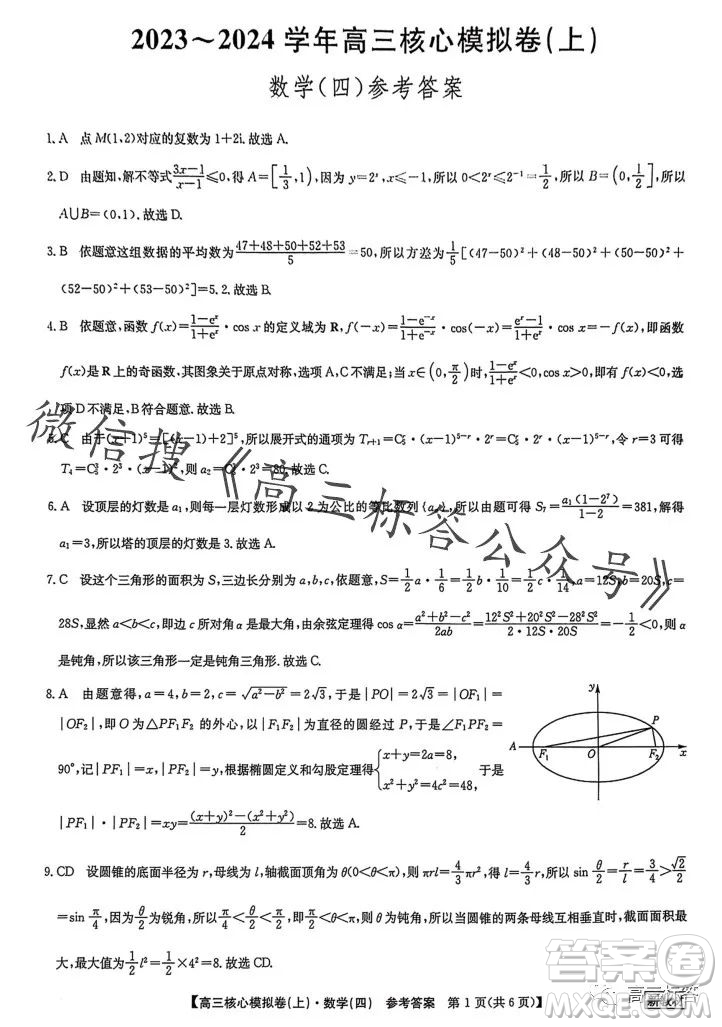 2023～2024 学年高三核心模拟卷(上)
数学(四)参考答案
1. A 点 M(1,2)对应的复数为 1+2i. 故选 A.
2. D 由题知,解不等式 (3x−1)/(x−1)≤0,得 A=[1/3,1),因为 y=2ˣ,x≤−1,所以 0<2ˣ≤2⁻¹=1/2,所以 B=(0,1/2],所以
A∪B=(0,1). 故选 D.
3. B 依题意这组数据的平均数为 (47+48+50+52+53)/5=50,所以方差为 1/5[(47−50)²+(48−50)²+(50−50)²+
(52−50)²+(53−50)²]=5.2. 故选 B.
4. B 依题意,函数 f(x)=(1−eˣ)/(1+eˣ)·cos x 的定义域为 R,f(−x)=(1−e⁻ˣ)/(1+e⁻ˣ)·cos(−x)=(eˣ−1)/(1+eˣ)·cos x=−f(x),即函数
f(x)是 R 上的奇函数,其图象关于原点对称,选项 A,C 不满足;当 x∈(0,π/2)时,(1−eˣ)/(1+eˣ)<0,cos x>0,即 f(x)<0,选
项 D 不满足,B 符合题意. 故选 B.
5. C 由于(x+1)⁵=[(x−1)+2]⁵,所以展开式的通项为 Tᵣ₊₁=C₅ʳ·(x−1)⁵⁻ʳ·2ʳ=C₅ʳ·2ʳ·(x−1)⁵⁻ʳ,令 r=3 可得
T₄=C₅³·2³·(x−1)²,则 a₂=C₅³·2³=80. 故选 C.
6. A 设顶层的灯数是 a₁,则每一层灯数形成以 2 为公比的等比数列{aₙ},所以由题可得 S₇=a₁(1−2⁷)/(1−2)=381,解得
a₁=3,所以塔的顶层的灯数是 3. 故选 A.
7. C 设这个三角形的面积为 S,三边长分别为 a,b,c,依题意,S=1/2 a·1/6=1/2 b·1/10=1/2 c·1/14,a=12S,b=20S,c=
28S,显然 a<b<c,即边 c 所对角 α 是最大角,由余弦定理得 cos α=(a²+b²−c²)/2ab=(12²S²+20²S²−28²S²)/(2·12S·20S)=−1/2<0,则 α
是钝角,所以该三角形一定是钝角三角形. 故选 C.
8. A 由题意得,a=4,b=2,c=√(a²−b²)=2√3,于是|PO|=2√3=|OF₁|=
|OF₂|,即 O 为△PF₁F₂ 的外心,以|F₁F₂|为直径的圆经过 P,于是∠F₁PF₂=
90°,记|PF₁|=x,|PF₂|=y,根据椭圆定义和勾股定理得{x+y=2a=8, x²+y²=4c²=48, 于是
|PF₁|·|PF₂|=xy=((x+y)²−(x²+y²))/2=8. 故选 A.
y
P
A
F₁
O
F₂
x
9. CD 设圆锥的底面半径为 r,母线为 l,轴截面顶角为 θ(0<θ<π),则 πrl=4/3πr²,得 l=4/3r,所以 sin θ/2=r/l=3/4>√2/2
=sin π/4,因为 θ/2 为锐角,所以 π/4<θ/2<π/2,即 π/2<θ<π,所以 θ 为钝角,所以当圆锥的两条母线互相垂直时,截面面积最
大,最大值为 1/2 l²=1/2×4²=8. 故选 CD.
【高三核心模拟卷(上)·数学(四) 参考答案 第 1 页(共 6 页)】
微信搜《高三标答公众号》
答案圈
MXQE.COM
高三标答